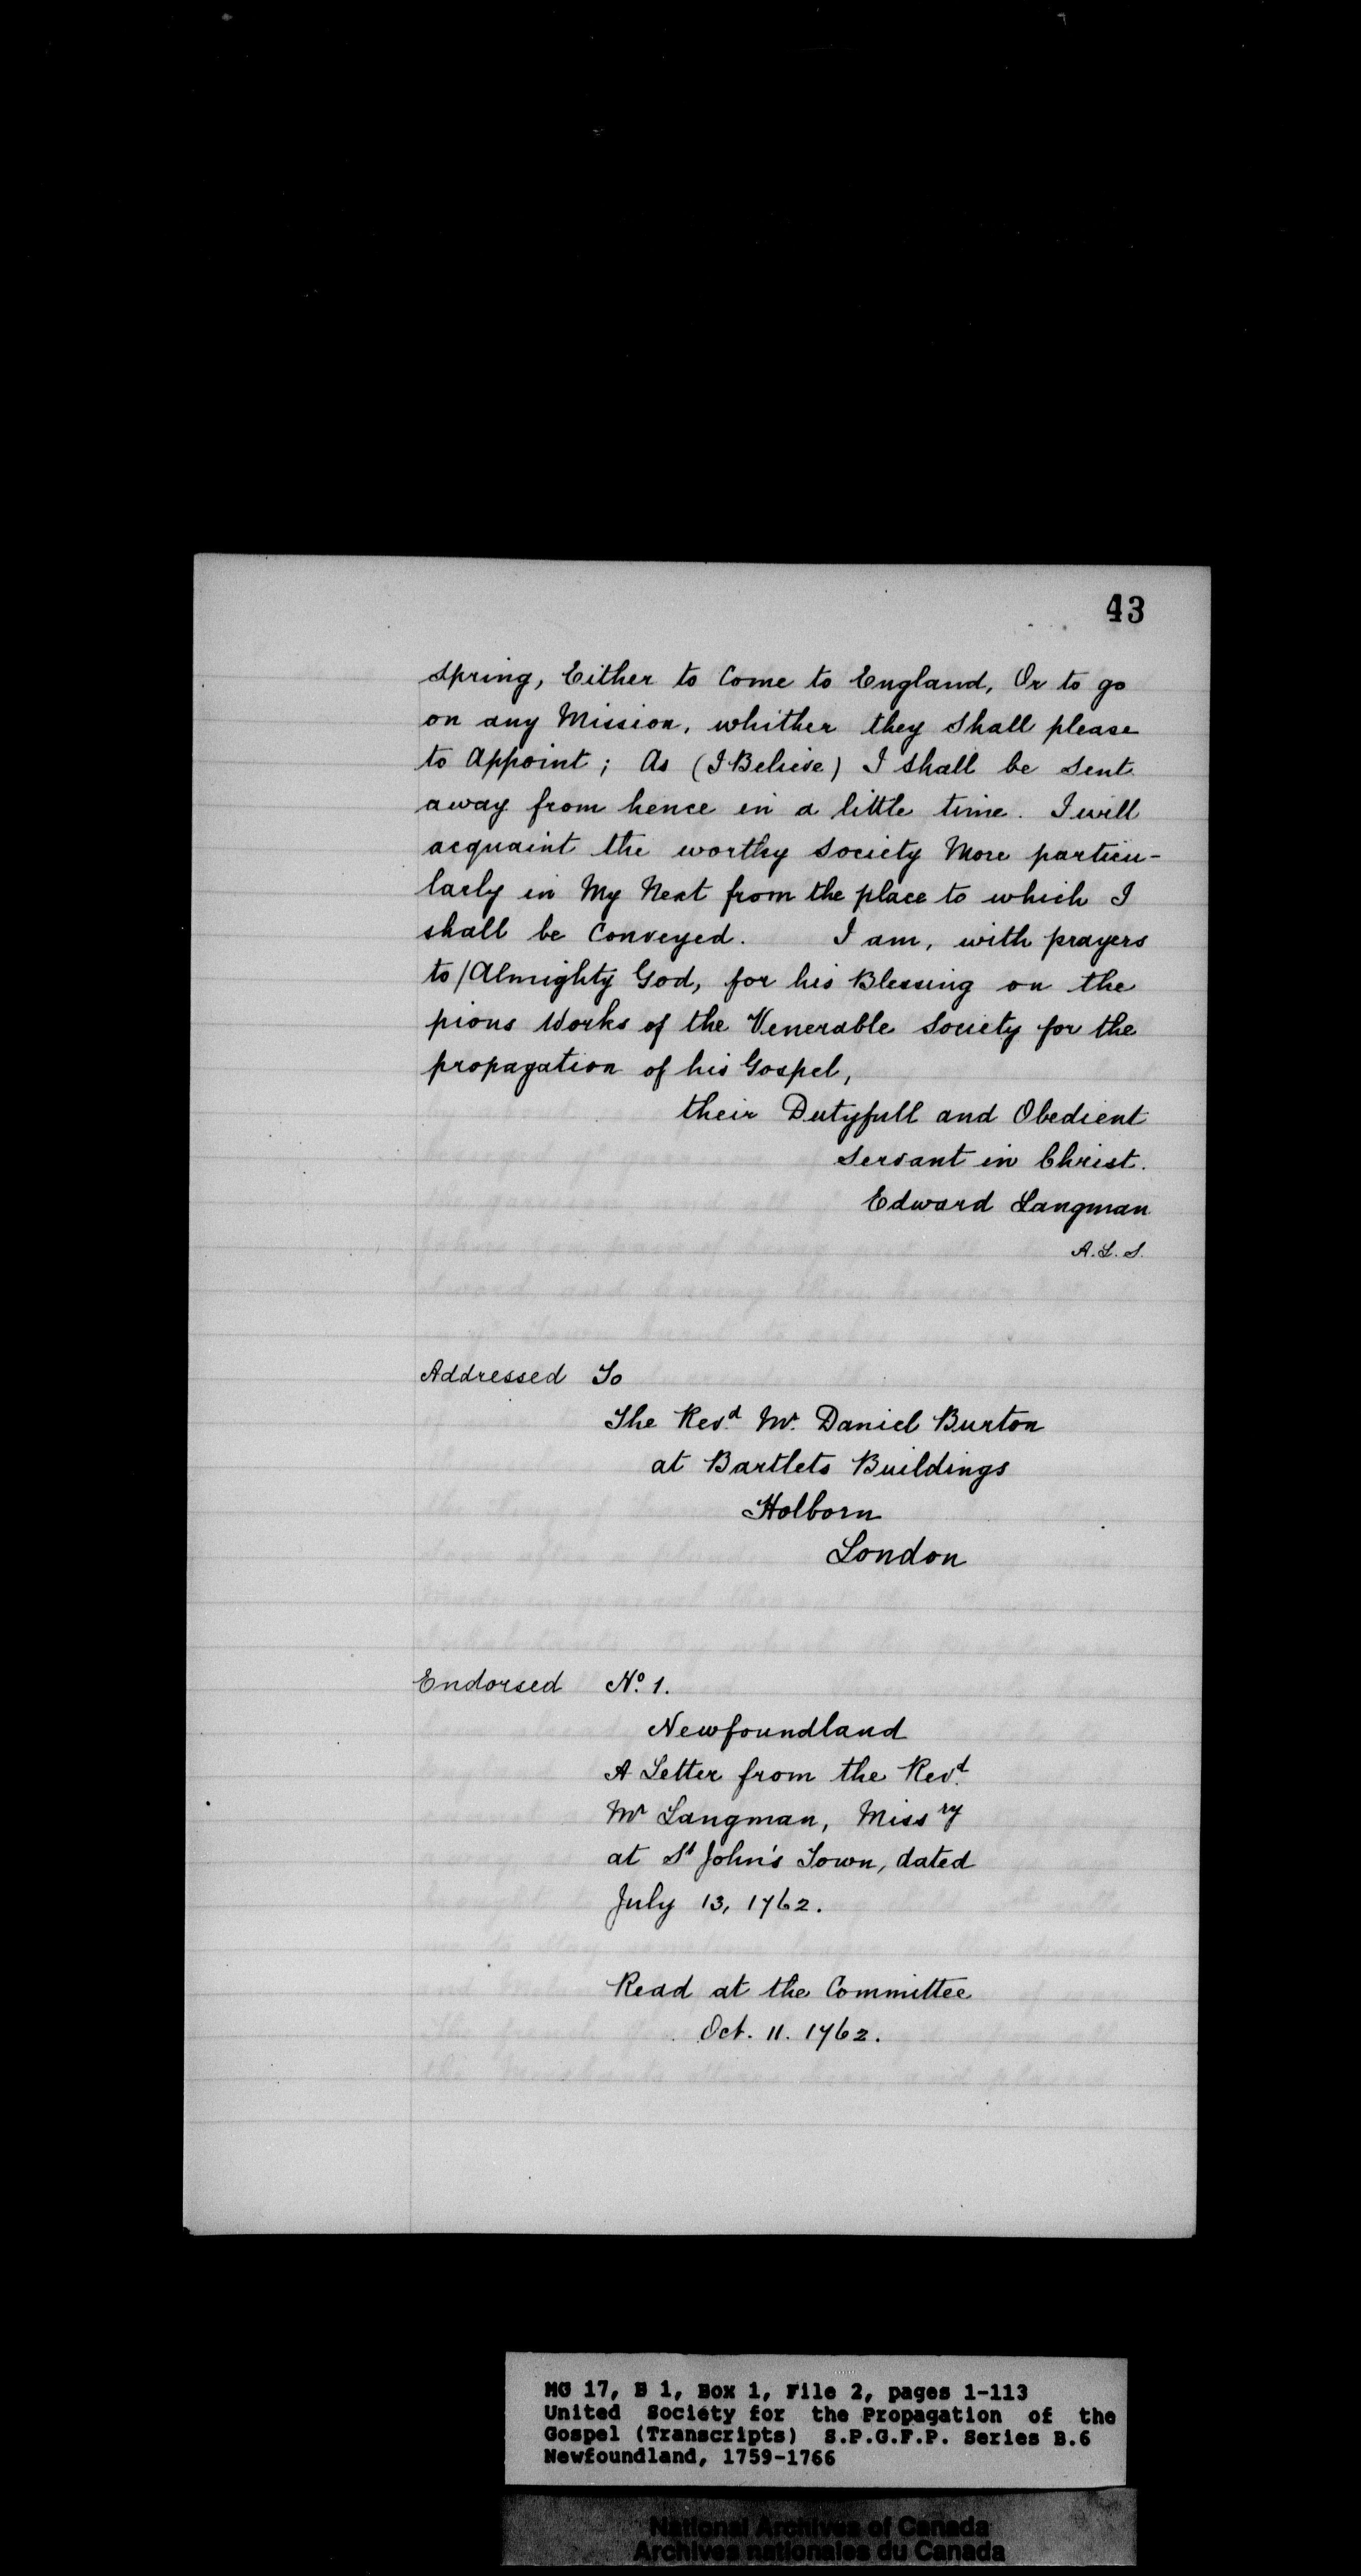 43
spring, Either to Come to England, Or to go
on any Mission, whither they shall please
to Appoint; As (I Believe) I shall be sent
away from hence in a little time. I will
acquaint the worthy Society More particu-
larly in My Next from the place to which I
shall be Conveyed. I am, with prayers
to/Almighty God, for his Blessing on the
pious Works of the Venerable Society for the
propagation of his Gospel,
their Dutyfull and Obedient
Servant in Christ.
Edward Langman
A.L.S.
Addressed To
The Revd Mr. Daniel Burton
at Bartlets Buildings
Holborn
London
Endorsed No. 1.
Newfoundland
A Letter from the Revd.
Mr Langman, Missry
at St John's Town, dated
July 13, 1762.
Read at the Committee
Oct. 11. 1762.
MG 17, B 1, Box 1, File 2, pages 1-113
United Society for the Propagation of the
Gospel (Transcripts) S.P.G.F.P. Series B.6
Newfoundland, 1759-1766
National Archives of Canada
Archives nationales du Canada